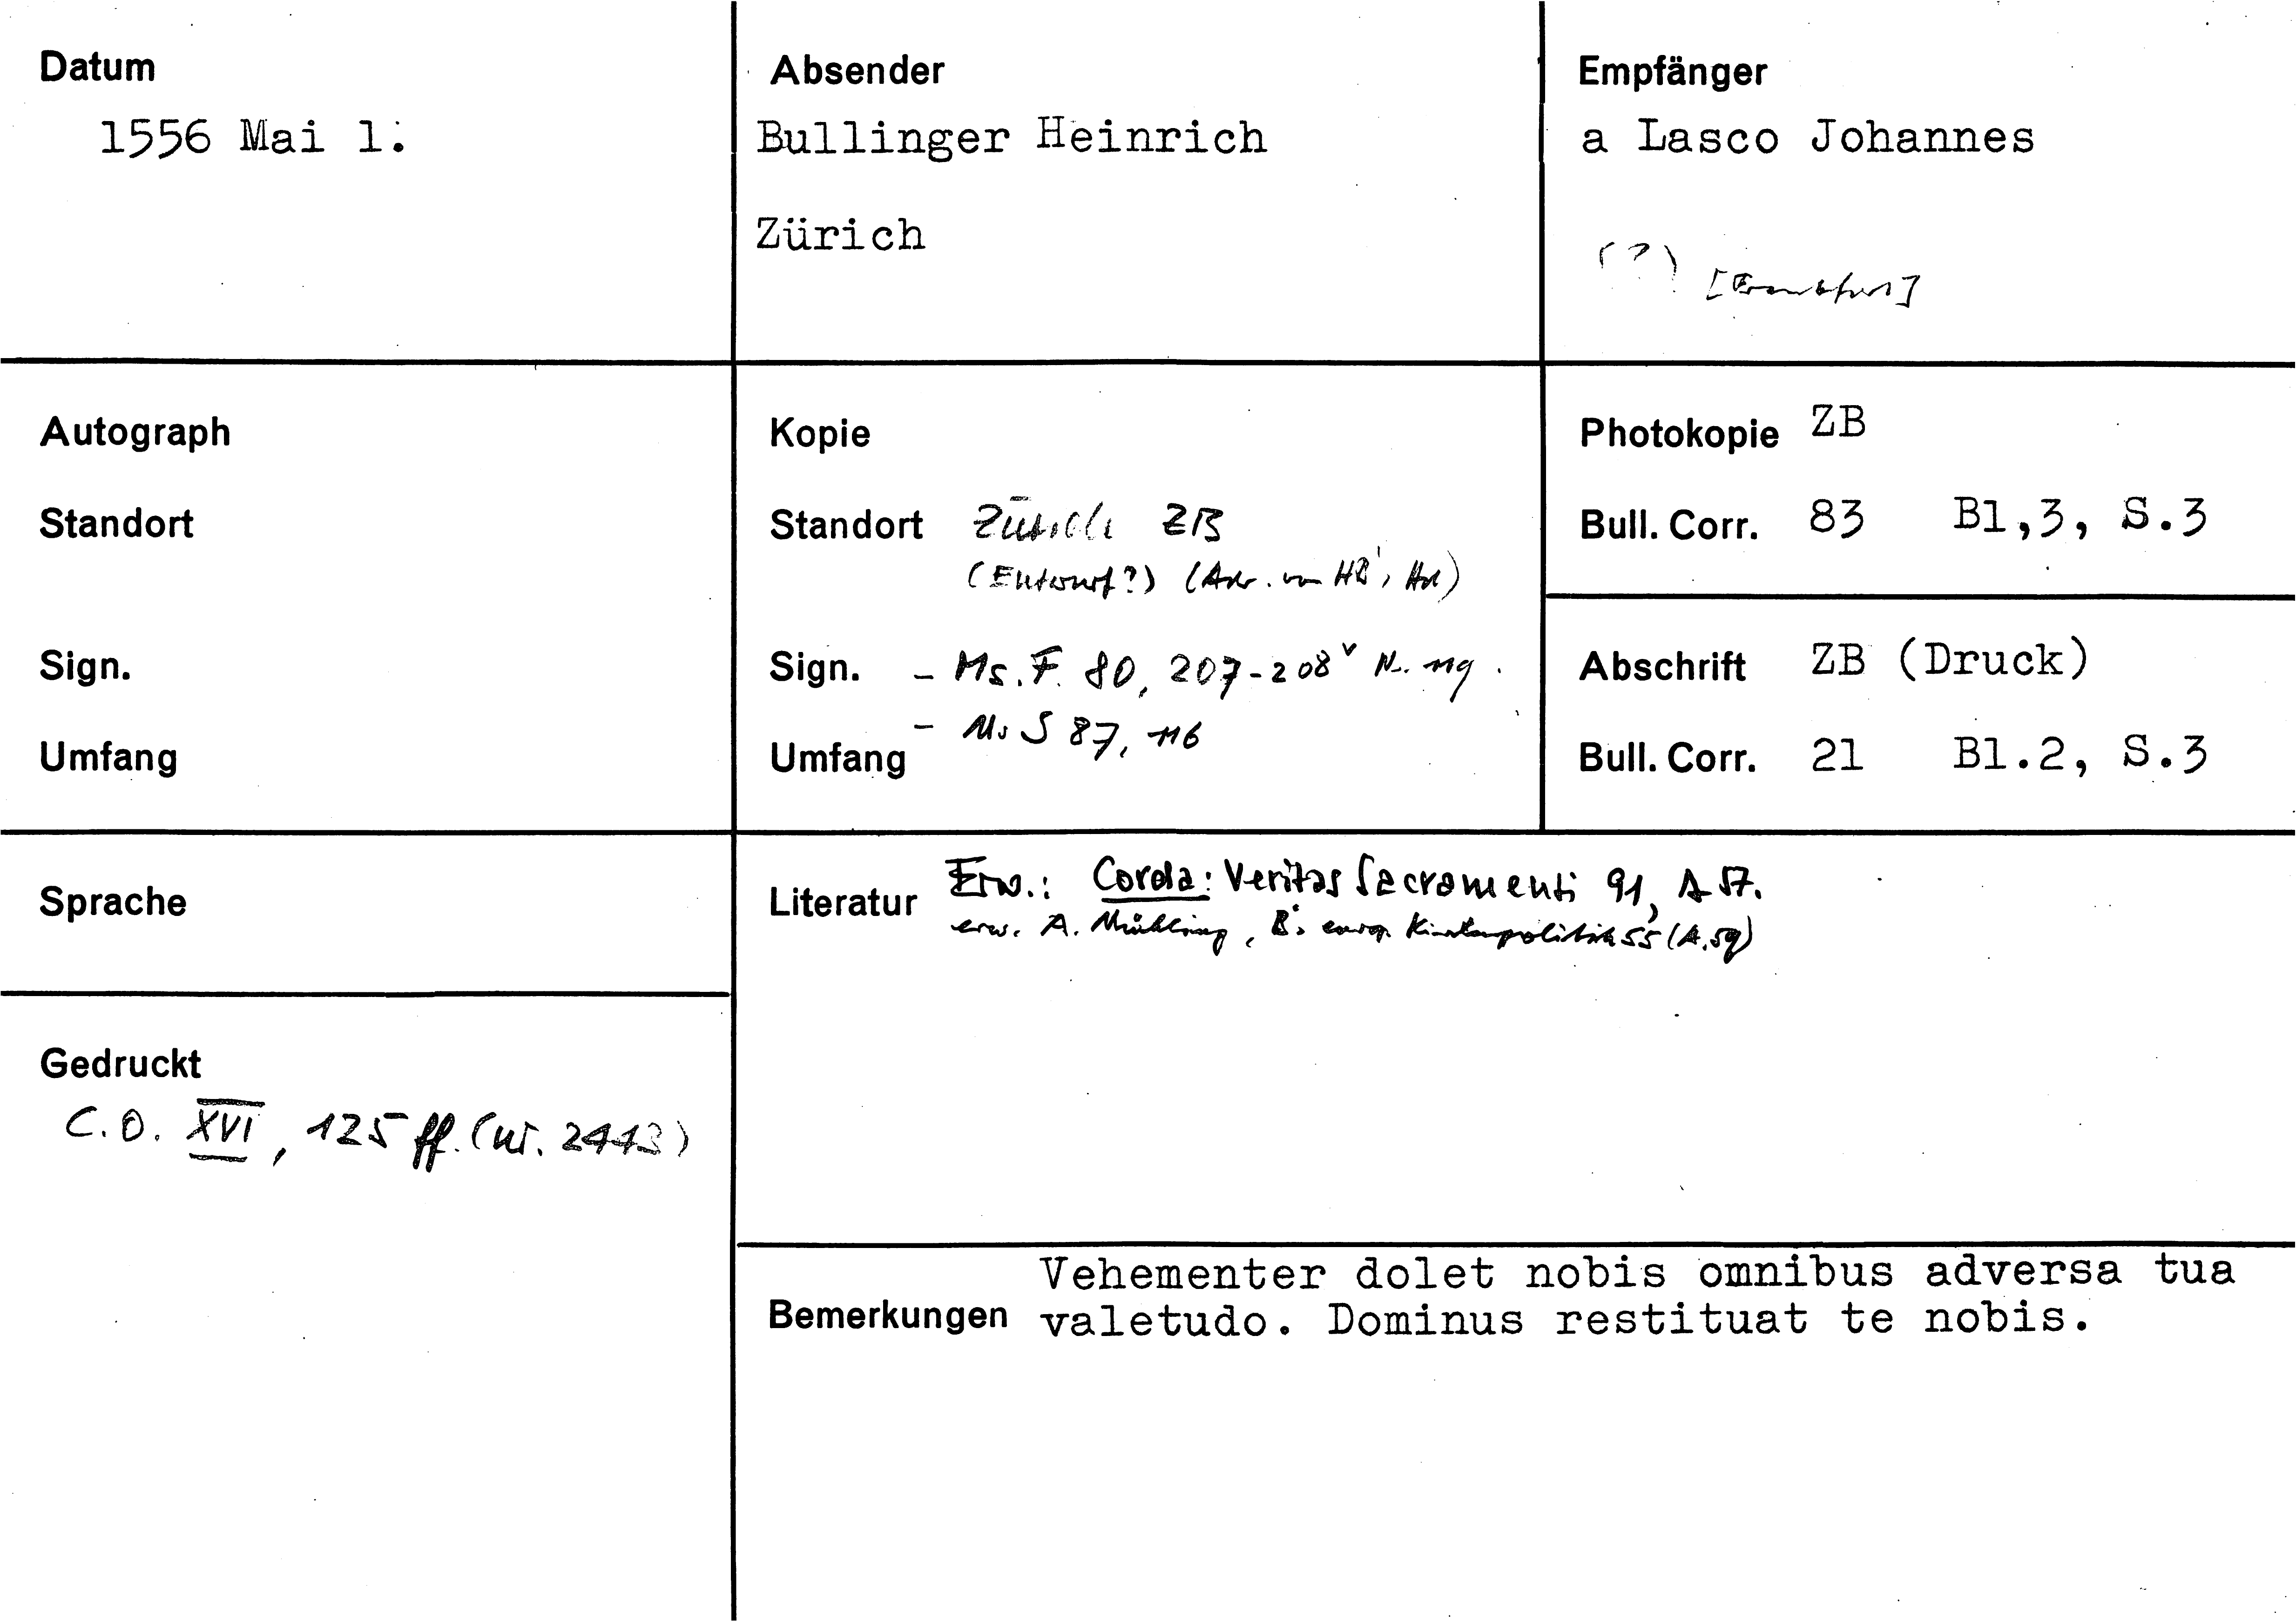 Datum
1556 Mai 1.
Absender
Bullinger Heinrich
Zürich
Empfänger
a Lasco Johannes
(?) [Frankfurt]
Autograph
Standort
Sign.
Umfang
Kopie
Standort Zürich ZB
(Entwurf?) (Adr. von HB's Hd)
Sign. - Ms. F. 80, 207-208v Nr. 119.
- Ms S 87, 116
Umfang
Photokopie ZB
Bull. Corr. 83 Bl,3, S.3
Abschrift ZB (Druck)
Bull. Corr. 21 Bl.2, S.3
Sprache
Gedruckt
C.O. XVI, 125 ff. (nr. 2443)
Literatur Erw.: Corda: Veritas Sacramenti 91, A 57.
erw. A. Mühling, B's europ. Kirchenpolitik 55 (A.59)
Bemerkungen Vehementer dolet nobis omnibus adversa tua
valetudo. Dominus restituat te nobis.